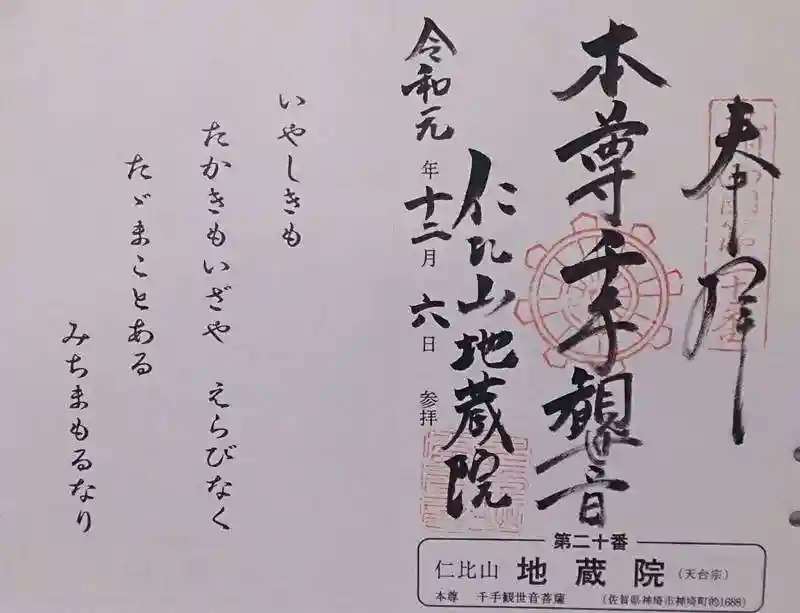 奉拝
本尊千手観世音
仁比山地蔵院
令和元年十二月六日参拝
いやしきも
たかきもいざや えらびなく
たゞまことある
みちまもるなり
第二十番
仁比山 地蔵院 (天台宗)
本尊 千手観世音菩薩 (佐賀県神埼市神埼町的1688)